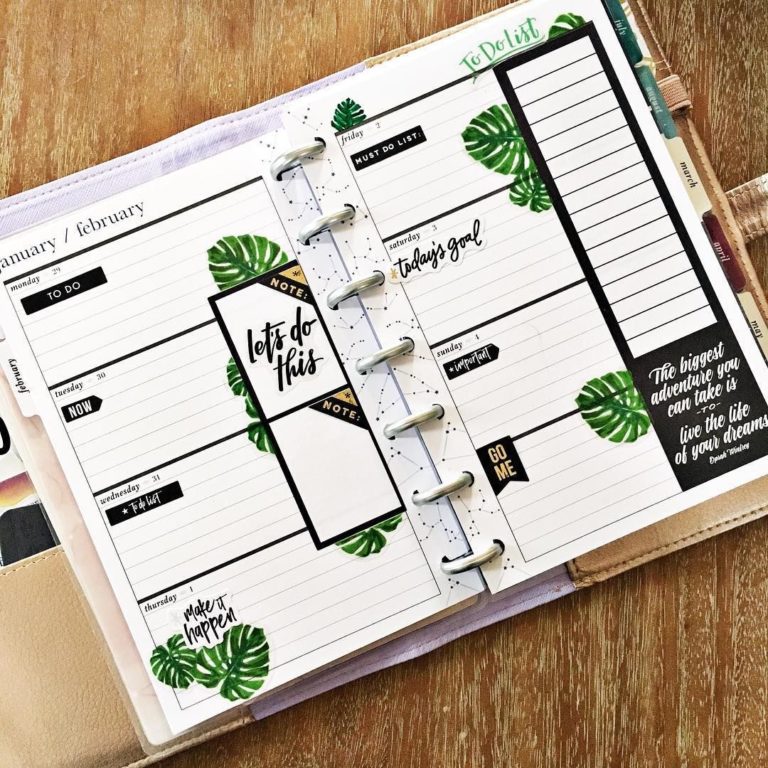 anuary / february
monday 29
TO DO
NOTE:
let's do
this
tuesday 30
NOW
NOTE:
wednesday 31
to do list
thursday 1
make it
happen
february
To Do List
friday 2
MUST DO LIST:
saturday 3
today's goal
sunday 4
important
GO
ME
The biggest
adventure you
can take is
TO
live the life
of your dreams
Oprah Winfrey
july
august
march
april
may